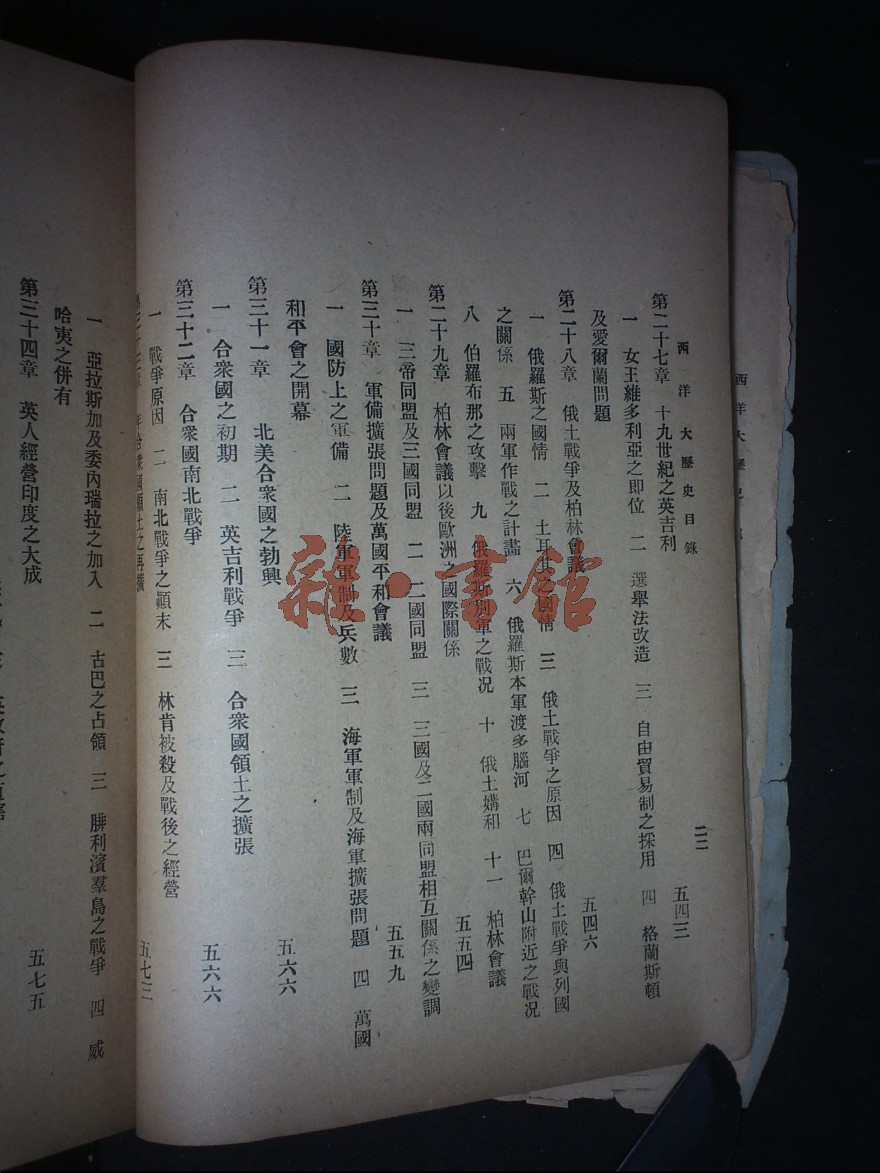 西洋大歷史目錄
二二
第二十七章 十九世紀之英吉利 五四三
一 女王維多利亞之即位 二 選舉法改造 三 自由貿易制之採用 四 格蘭斯頓
及愛爾蘭問題
第二十八章 俄土戰爭及柏林會議 五四六
一 俄羅斯之國情 二 土耳其之國情 三 俄土戰爭之原因 四 俄土戰爭與列國
之關係 五 兩軍作戰之計畫 六 俄羅斯本軍渡多腦河 七 巴爾幹山附近之戰況
八 伯羅布那之攻擊 九 俄羅斯別軍之戰況 十 俄土媾和 十一 柏林會議
第二十九章 柏林會議以後歐洲之國際關係 五五四
一 三帝同盟及三國同盟 二 二國同盟 三 三國及二國兩同盟相互關係之變調
第三十章 軍備擴張問題及萬國平和會議 五五九
一 國防上之軍備 二 陸軍軍制及兵數 三 海軍軍制及海軍擴張問題 四 萬國
和平會之開幕
第三十一章 北美合衆國之勃興 五六六
一 合衆國之初期 二 英吉利戰爭 三 合衆國領土之擴張
第三十二章 合衆國南北戰爭 五六六
一 戰爭原因 二 南北戰爭之顚末 三 林肯被殺及戰後之經營
年合衆國領土之再擴 五七三
一 亞拉斯加及委內瑞拉之加入 二 古巴之占領 三 腓利濱羣島之戰爭 四 威
哈夷之併有
第三十四章 英人經營印度之大成 五七五
西洋大歷史
雜·書館